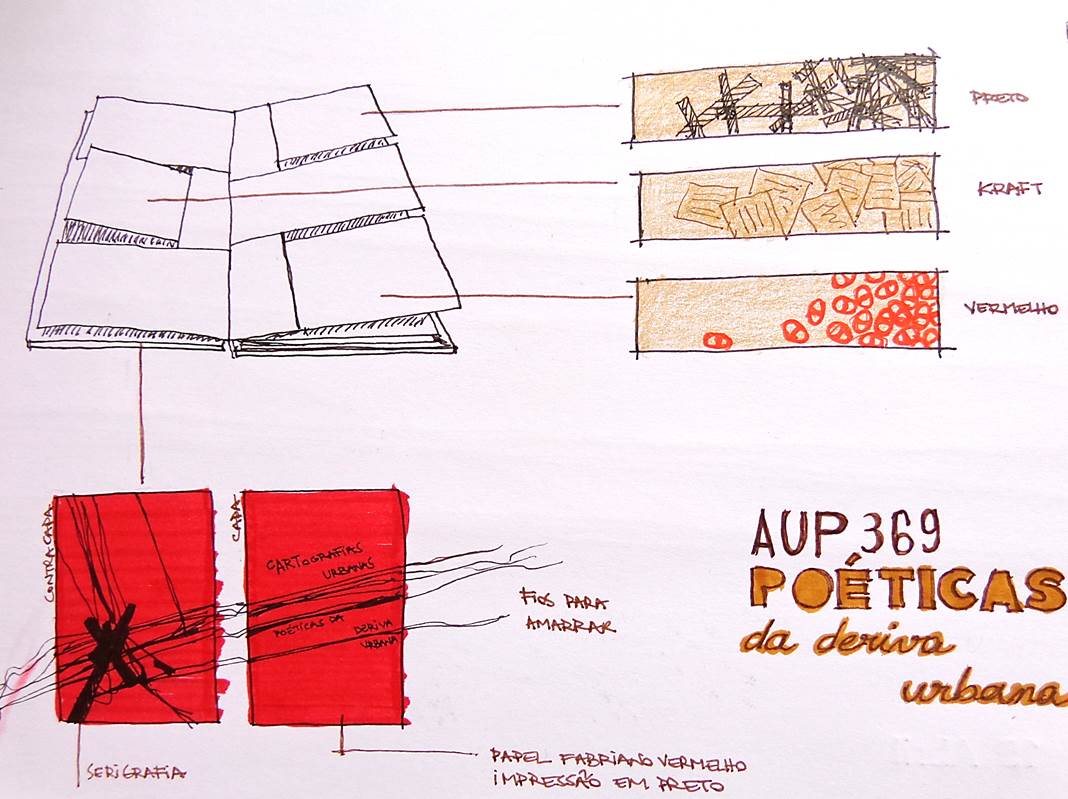 PRETO
KRAFT
VERMELHO
CONTRACAPA
CAPA
CARTOGRAFIAS
URBANAS
POÉTICAS DA DERIVA
URBANA
FIOS PARA
AMARRAR
AUP 369
POÉTICAS
da deriva
urbana
SERIGRAFIA
PAPEL FABRIANO VERMELHO
IMPRESSÃO EM PRETO